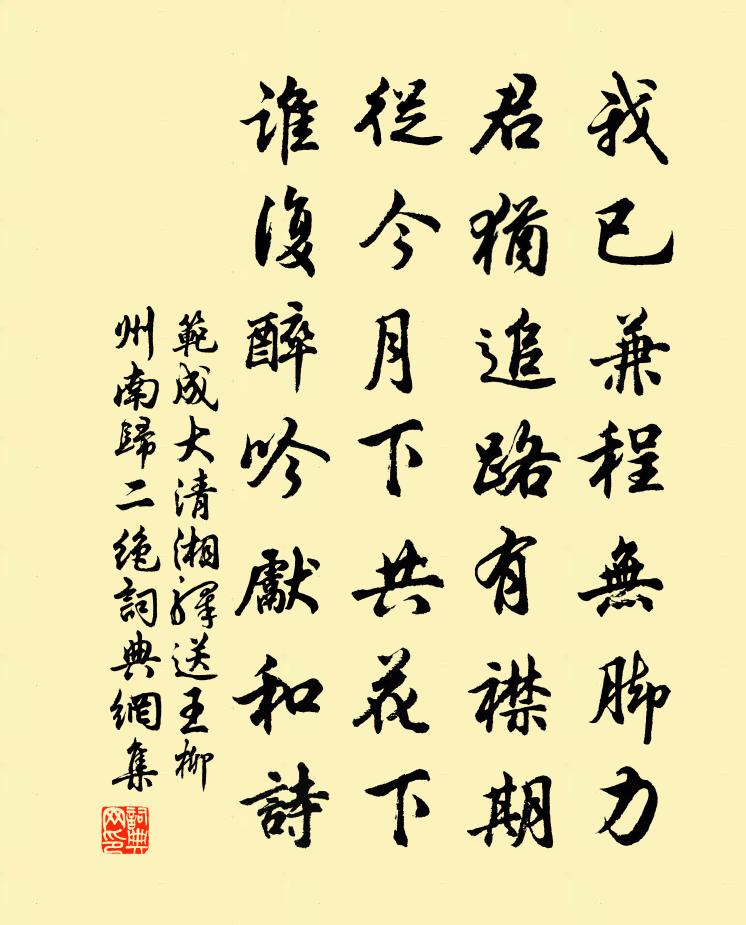 我已兼程無脚力
君猶追路有襟期
從今月下共花下
誰復醉吟獻和詩
範成大清湘驛送王柳
州南歸二絶詞典網集
詞典
网印